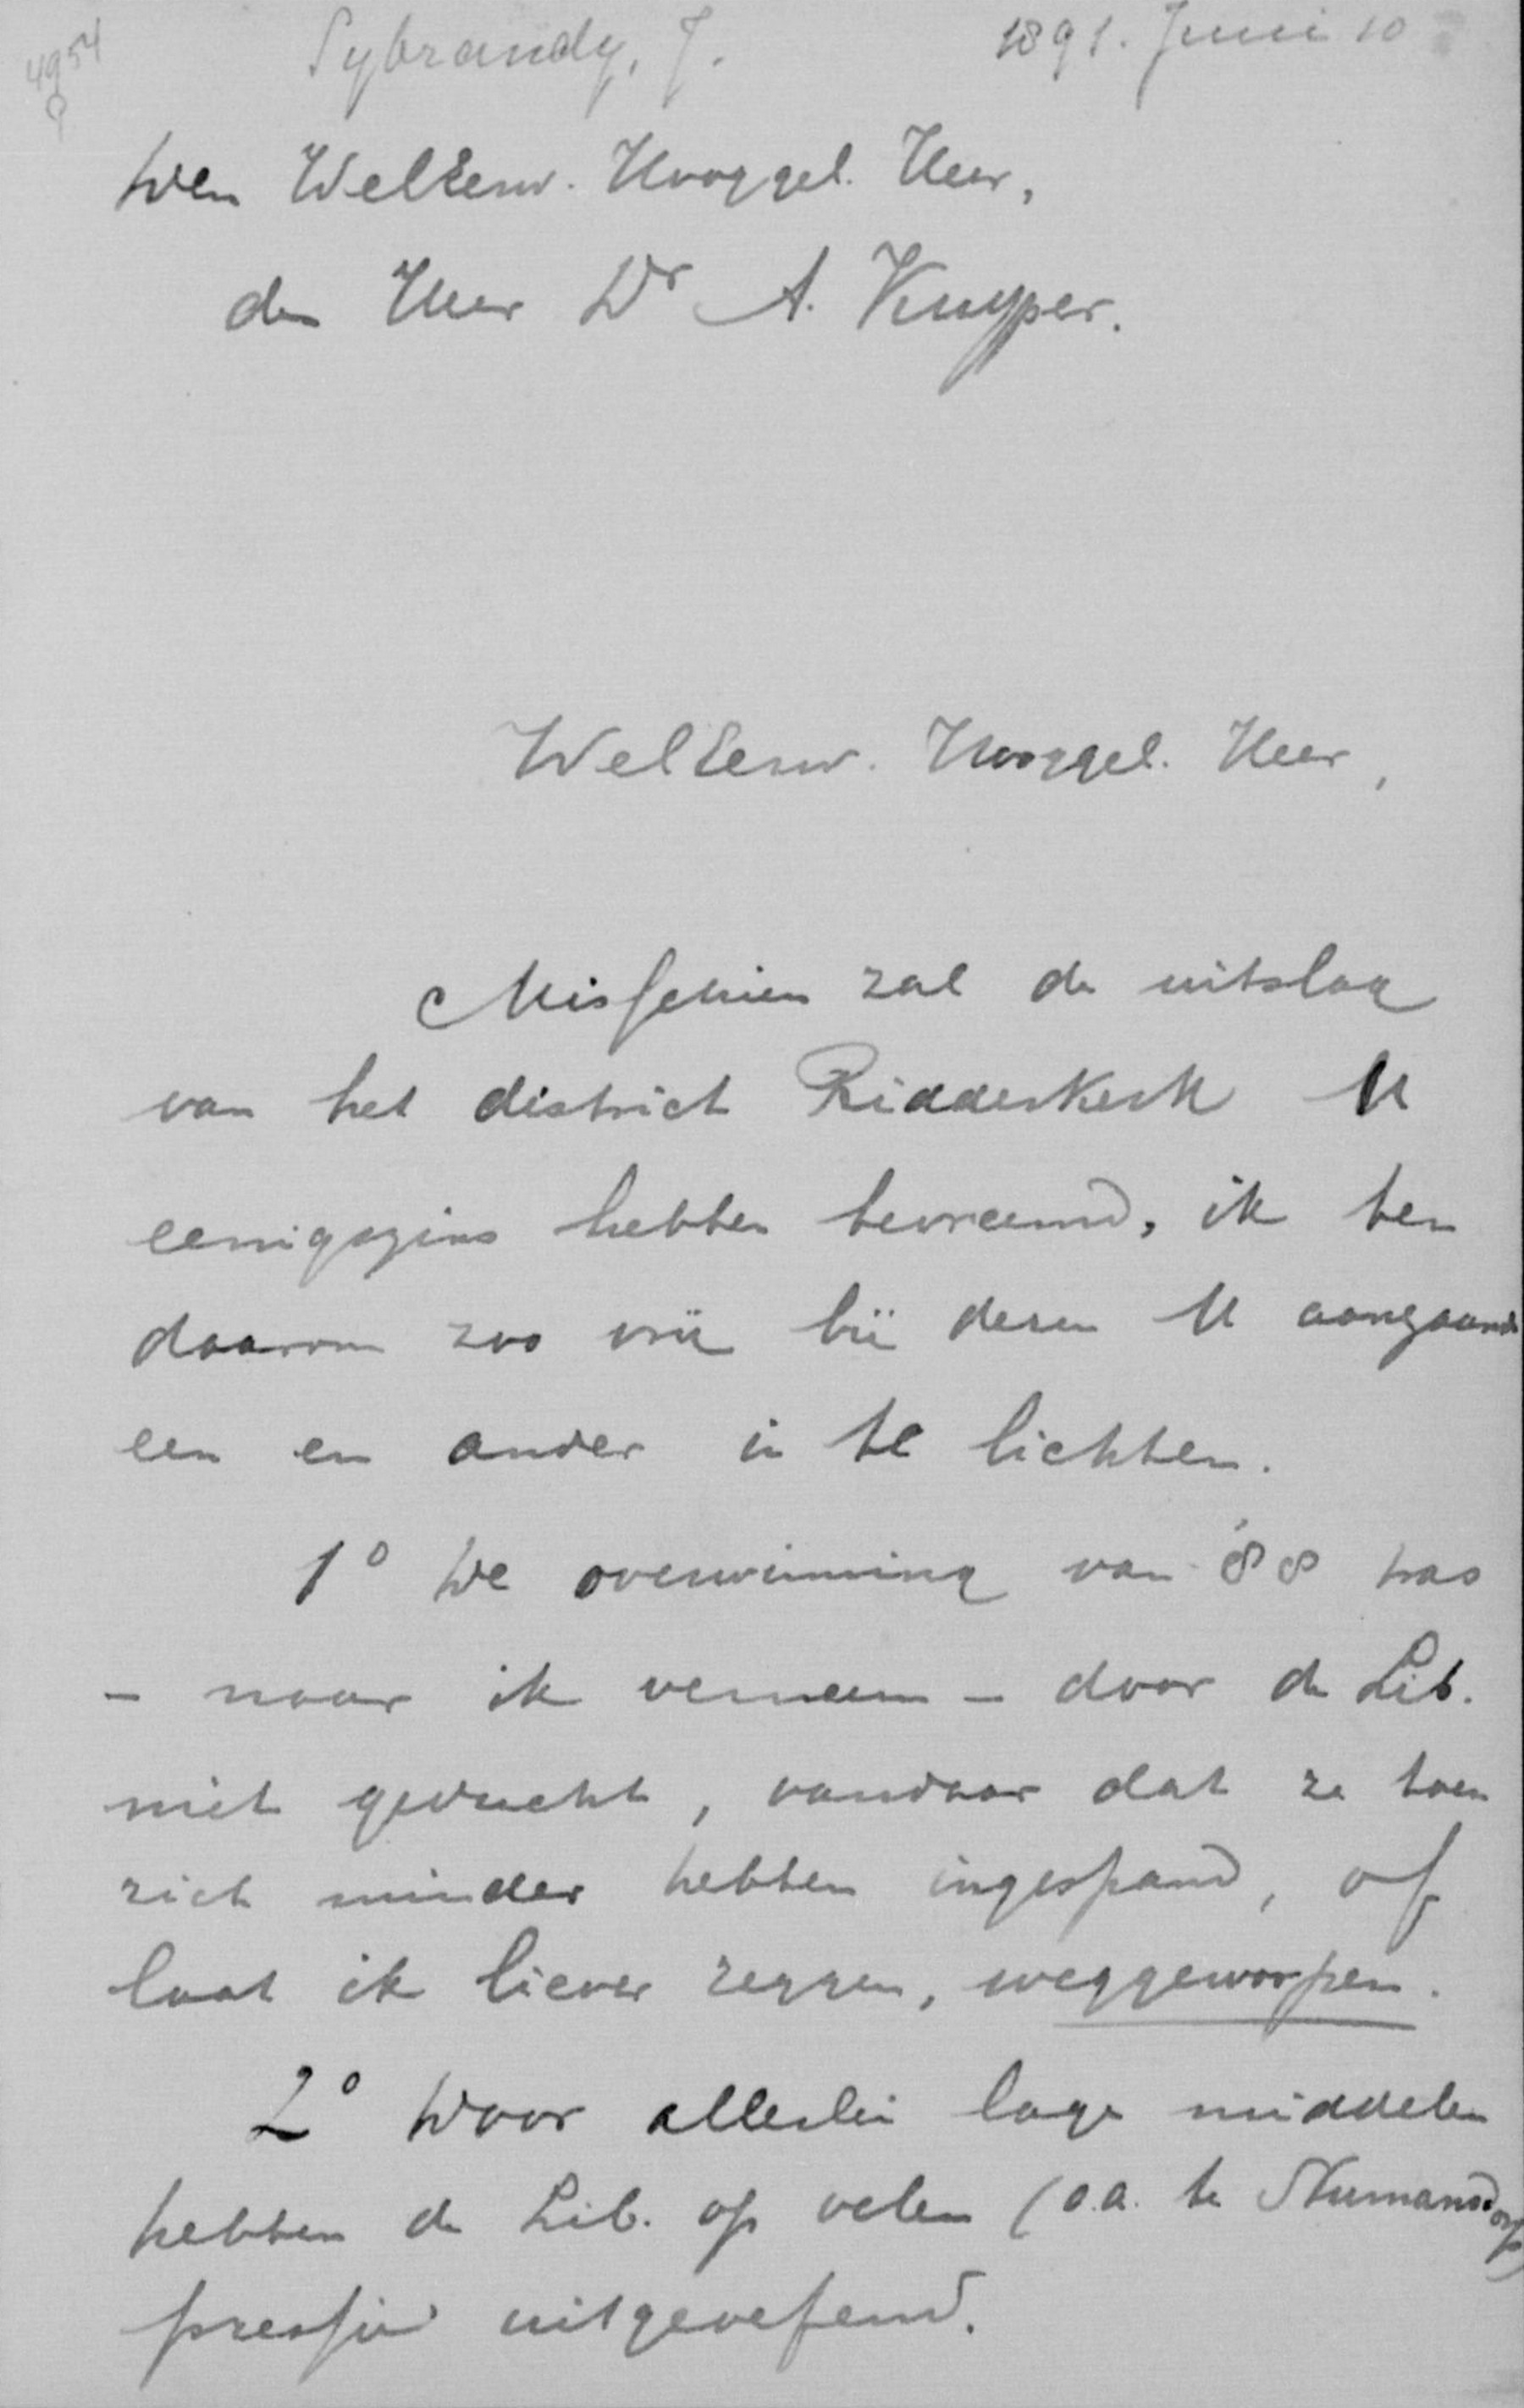 4954
Sybrandy, J.
1891. Juni 10
Den WelEerw. Hooggel. Heer,
den Heer Dr A. Kuyper.
WelEerw. Hooggel. Heer,
Misschien zal de uitslag
van het district Ridderkerk U
eenigszins hebben bevreemd, ik ben
daarom zoo vrij bij dezen U aangaande
een en ander in te lichten.
1o De overwinning van '88 was
- naar ik verneem - door de Lib.
niet geducht, vandaar dat ze toen
zich minder hebben ingespand, of
laat ik liever zeggen, weggeworpen.
2o Door allerlei lage middelen
hebben de Lib. op velen (o.a. te Numansdorp)
pressie uitgeoefend.